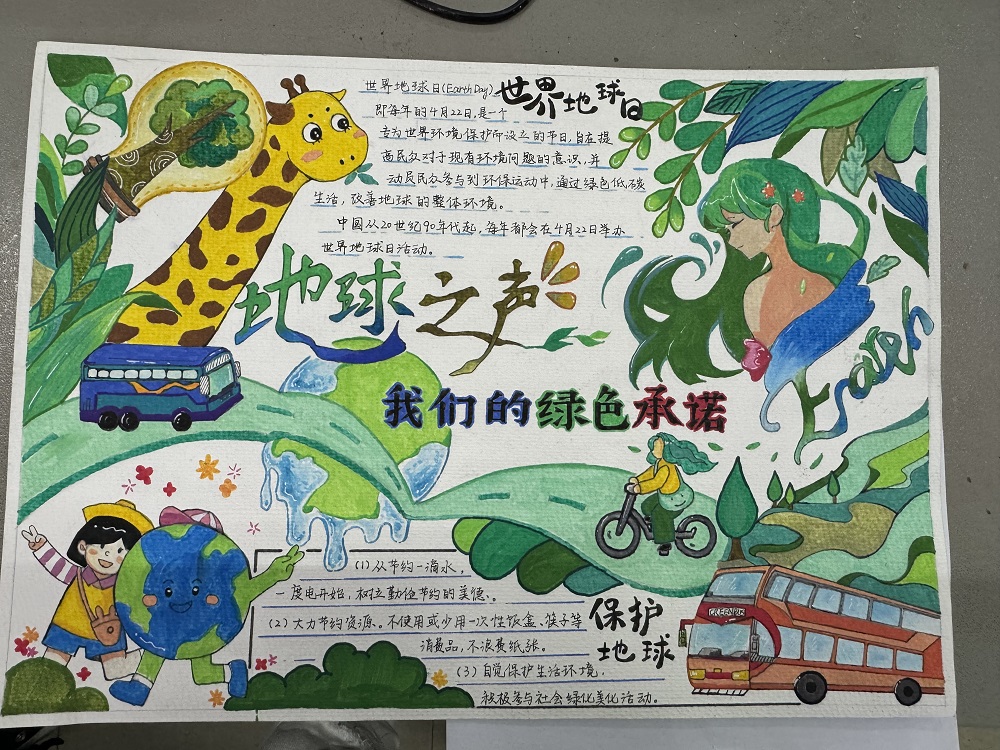 世界地球日(Earth Day)
世界地球日
即每年的4月22日,是一个
专为世界环境保护而设立的节日,旨在提
高民众对于现有环境问题的意识,并
动员民众参与到环保运动中,通过绿色低碳
生活,改善地球的整体环境。
中国从20世纪90年代起,每年都会在4月22日举办
世界地球日活动。
地球之声
Earth
我们的绿色承诺
(1)从节约一滴水,
一度电开始,树立勤俭节约的美德。
(2)大力节约资源。不使用或少用一次性饭盒、筷子等
消费品,不浪费纸张。
(3)自觉保护生活环境,
积极参与社会绿化美化活动。
保护
地球